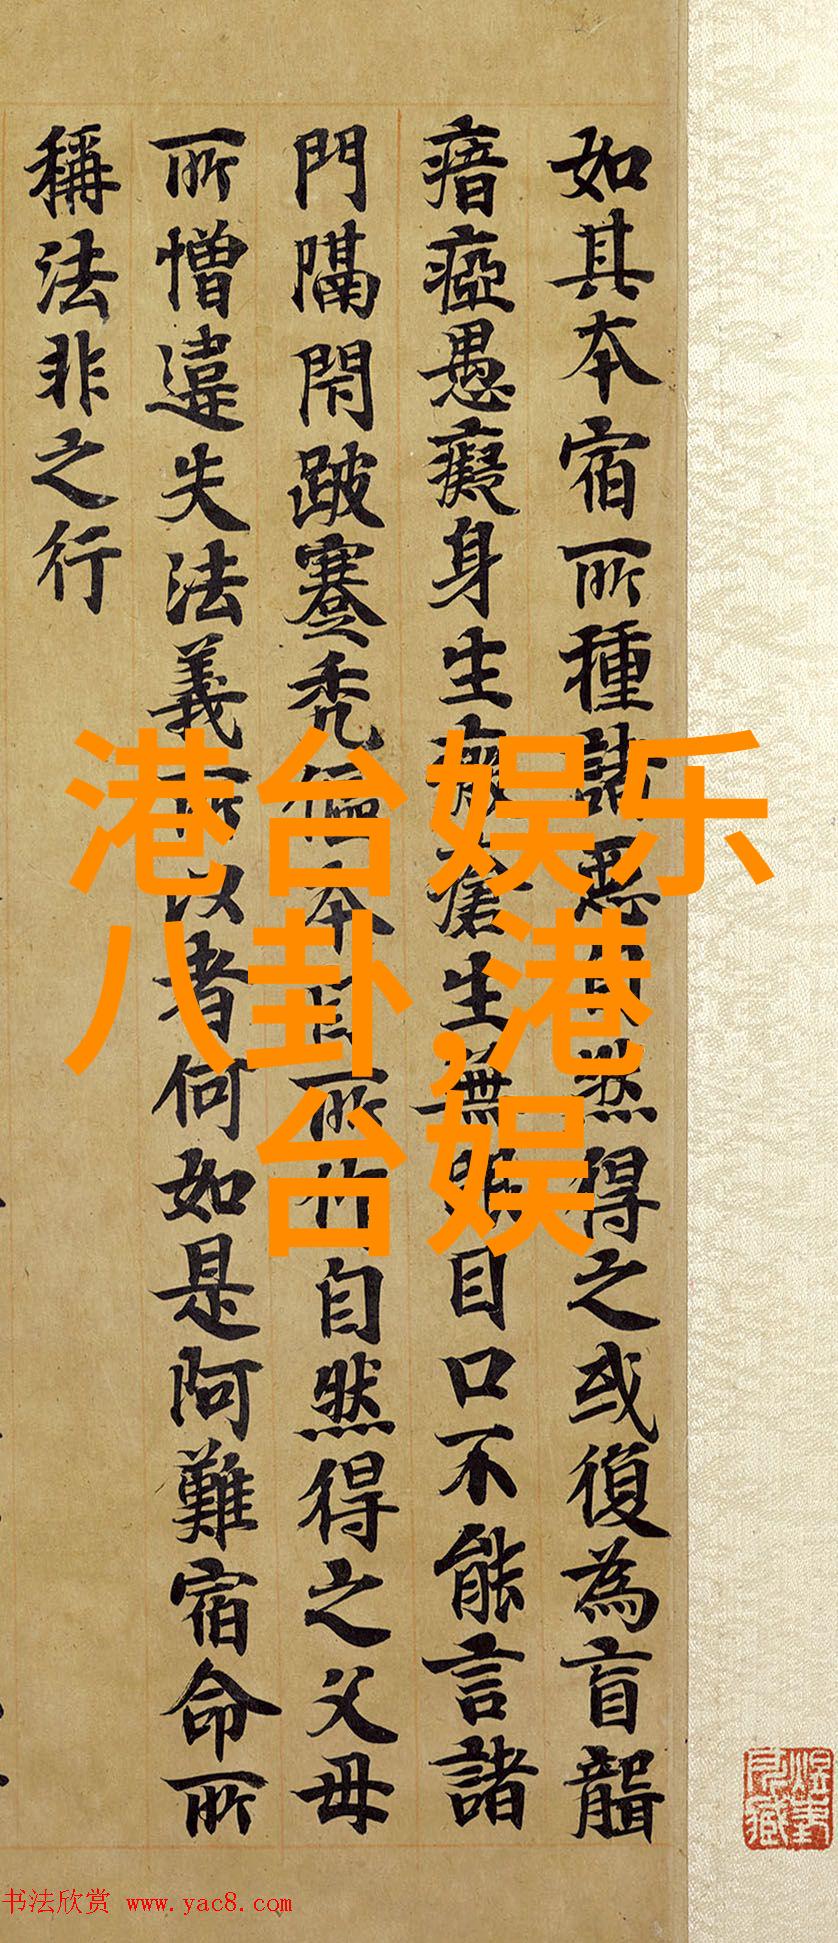 如其本宿所種諸惡自然得之或復為盲聾
瘖瘂愚癡身生癩瘡生無眼目口不能言諸
門隔閇跛蹇秃傴本宿所作自然得之父母
所憎違失法義所以者何如是阿難宿命所
稱法非之行
港台娱乐
八卦,港
台娱
书法欣赏 www.yac8.com